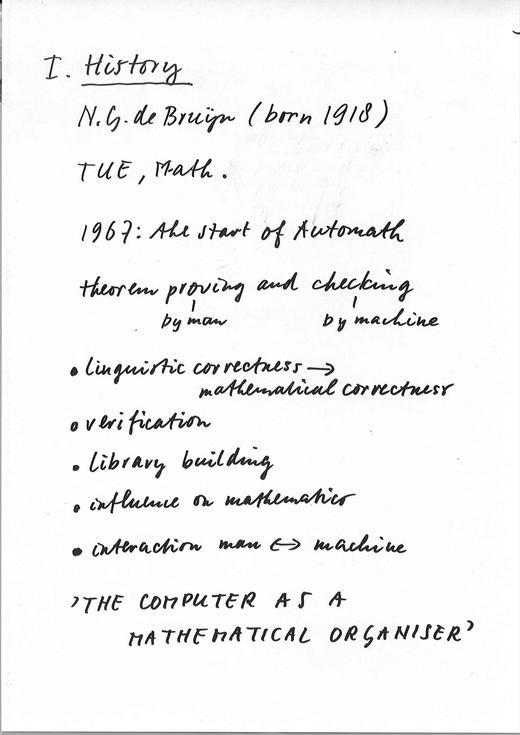 I. History
N.G. de Bruijn (born 1918)
TUE, Math.
1967: the start of Automath
theorem proving and checking
by man by machine
• linguistic correctness →
mathematical correctness
• verification
• library building
• influence on mathematics
• interaction man ↔ machine
'THE COMPUTER AS A
MATHEMATICAL ORGANISER'